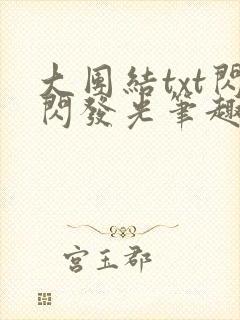 大團結txt閃
閃發光筆趣
宮玉郡